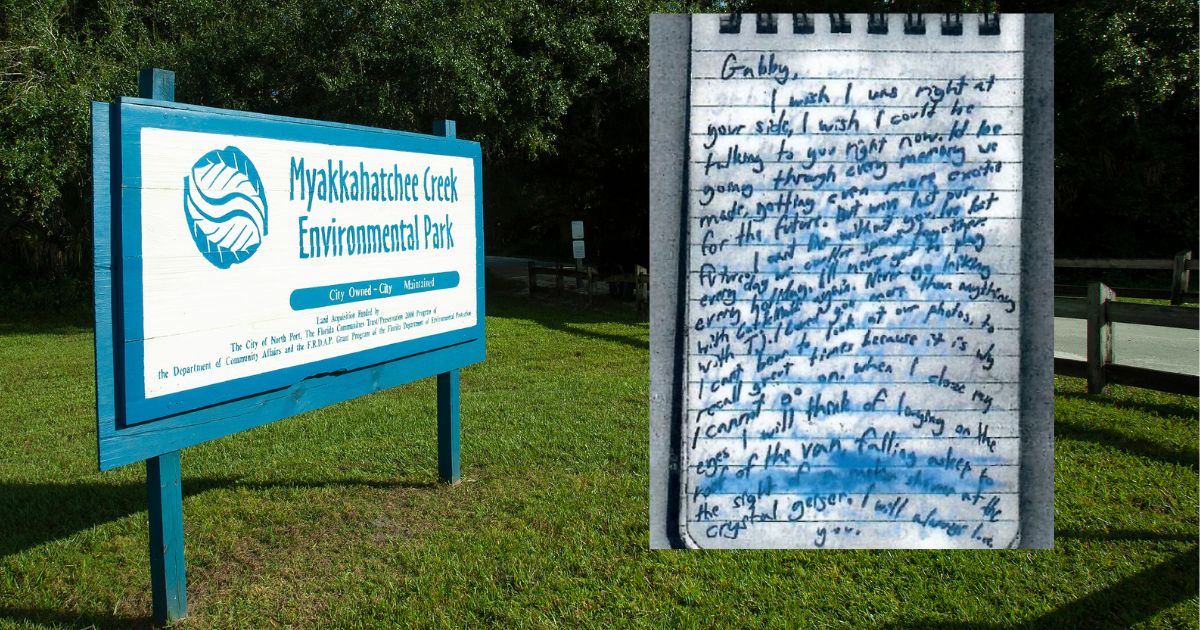 Myakkahatchee Creek
Environmental Park
City Owned - City Maintained
Land Acquisition Funded by
The City of North Port, The Florida Communities Trust/Preservation 2000 Program of
the Department of Community Affairs and the F.R.D.A.P. Grant Program of the Florida Department of Environmental Protection
Gabby,
I wish I was right at
your side, I wish I could be
talking to you right now. Id be
going through every memory we
made, getting even more excited
for the future. But weve lost our
future. I cant live without you. Ive lost
every day we could've spent together,
every holiday. Ill never get to play
with again. Never go hiking
with TJ. I loved you more than anything
I cant bear to look at our photos, to
recall great times because it is why
I cannot go on. when I close my
eyes I will think of laughing on the
roof of the van, falling asleep to
the sight of a meteor shower at the
crystal geiser. I will always love
you.